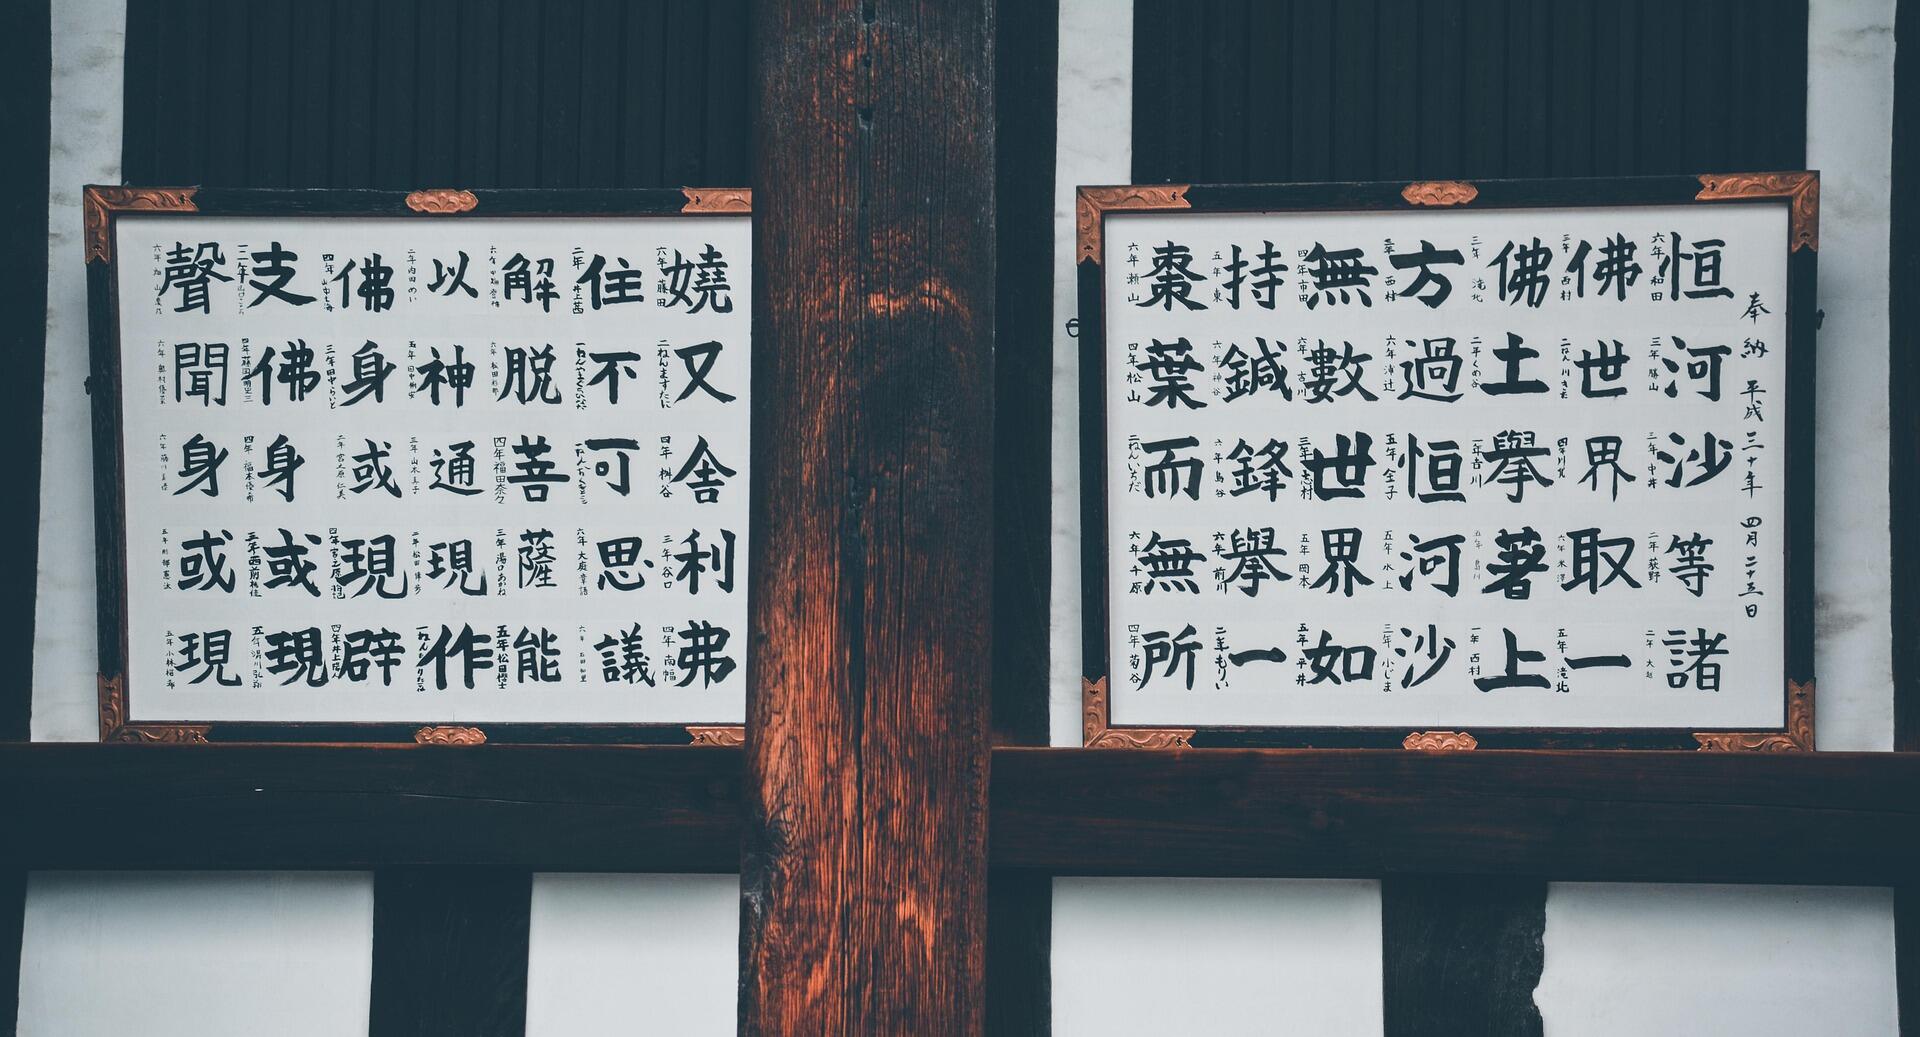 奉納 平成三十年 四月二十五日
恒河沙等諸
六年 和田
三年 勝山
三年 中井
二年 荻野
二年 大越
佛世界取一
三年 西村
四年 川北
六年 米澤
五年 滝北
佛土擧著上
三年 滝北
二年 くめ谷
一年 吉川
五年 島川
一年 西村
方過恒河沙
三年 西村
六年 津辻
五年 金子
五年 水上
三年 小じま
無數世界如
四年 市田
六年 古川
三年 志村
五年 岡本
五年 平井
持鍼鋒擧一
五年 東
六年 神谷
六年 島谷
六年 前川
二年 もりい
棗葉而無所
六年 瀬山
四年 松山
二ねん いちだ
六年 千原
四年 菊谷
嬈又舍利弗
六年 藤田
二ねん ますたに
四年 桝谷
三年 谷口
四年 南幅
住不可思議
二年 井上茜
六年 大庭章語
解脱菩薩能
六年 松田彩那
四年 福田奈々
三年 湯口あかね
五年 松田櫻士
以神通現作
二年 内田めい
五年 田中
三年 山本真子
二年 松田
佛身或現辟
四年 山中七海
三年 田中らいと
二年 宮之原仁美
四年 宮之原
四年 井上陽
支佛身或現
四年 福本優希
三年 西前
五年 滑川弘
聲聞身或現
六年 畑山
六年 奥村
六年 滑川
五年 刑部憲汰
五年 小林桜希